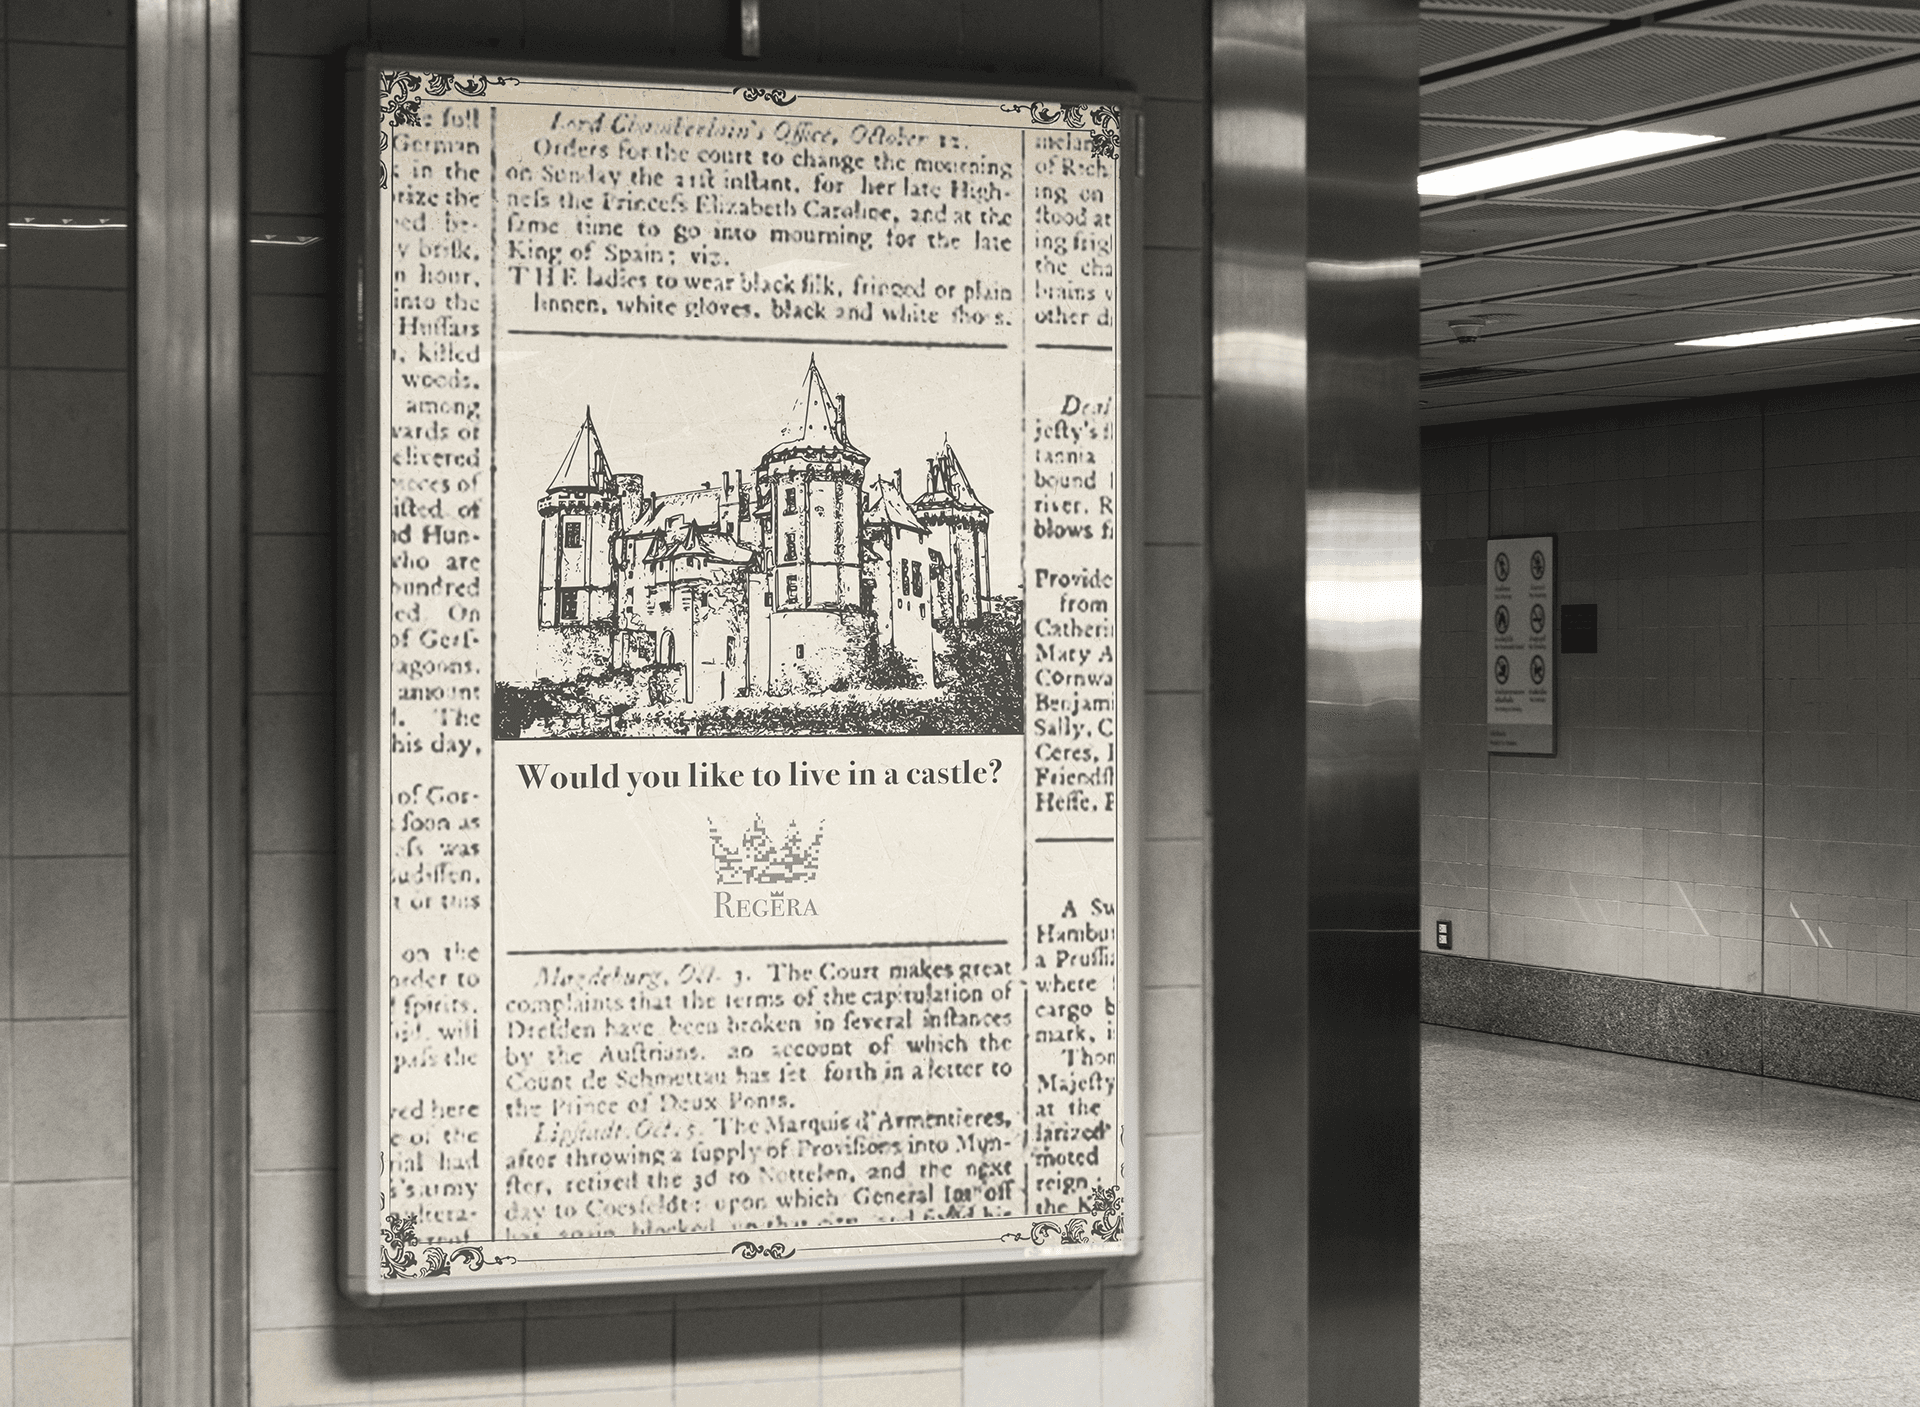 full
German
in the
rize the
ed be-
y briſk,
n hour,
into the
Huſſars
killed
woods,
among
wards of
elivered
pieces of
iſted of
nd Hun-
who are
hundred
ed. On
of Gerſ-
ragoons,
amount
The
his day,
of Gor-
ſoon as
was
or this
on the
order to
ſpirits,
will
paſs the
red here
e of the
rial had
s's army
Lord Chamberlain's Office, October 12.
Orders for the court to change the mourning
on Sunday the 21ſt inſtant, for her late High-
neſs the Princeſs Elizabeth Caroline, and at the
ſame time to go into mourning for the late
King of Spain; viz.
THE ladies to wear black ſilk, fringed or plain
linnen, white gloves, black and white ſhoes.
Would you like to live in a castle?
REGERA
Magdeburg, Oct. 3. The Court makes great
complaints that the terms of the capitulation of
Dreſden have been broken in ſeveral inſtances
by the Auſtrians, an account of which the
Count de Schmettau has ſet forth in a letter to
the Prince of Deux Ponts.
Lipſtadt, Oct. 5. The Marquis d'Armentieres,
after throwing a ſupply of Proviſions into Mun-
ſter, retired the 3d to Nottelen, and the next
day to Coesfeldt: upon which General Imhoff
has again blocked up that
melan
of Rich
ing on
ſtood at
ing frig
the cha
brains
other d
Deal
jeſty's
tannia
bound
river. R
blows f
Provide
from
Catheri
Mary A
Cornwa
Benjam
Sally, C
Ceres,
Friendſ
Heſſe, P
A Sw
Hambu
a Pruſſi
where
cargo b
mark, i
Thom
Majeſty
at the
larized
moted
reign
the K